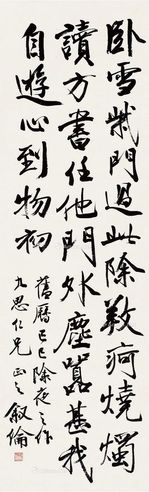 卧雪柴門過此除敦商燒燭
讀方書任他門外塵囂甚我
自遊心到物初
舊曆己巳除夜之作
九思仁兄正之叙倫